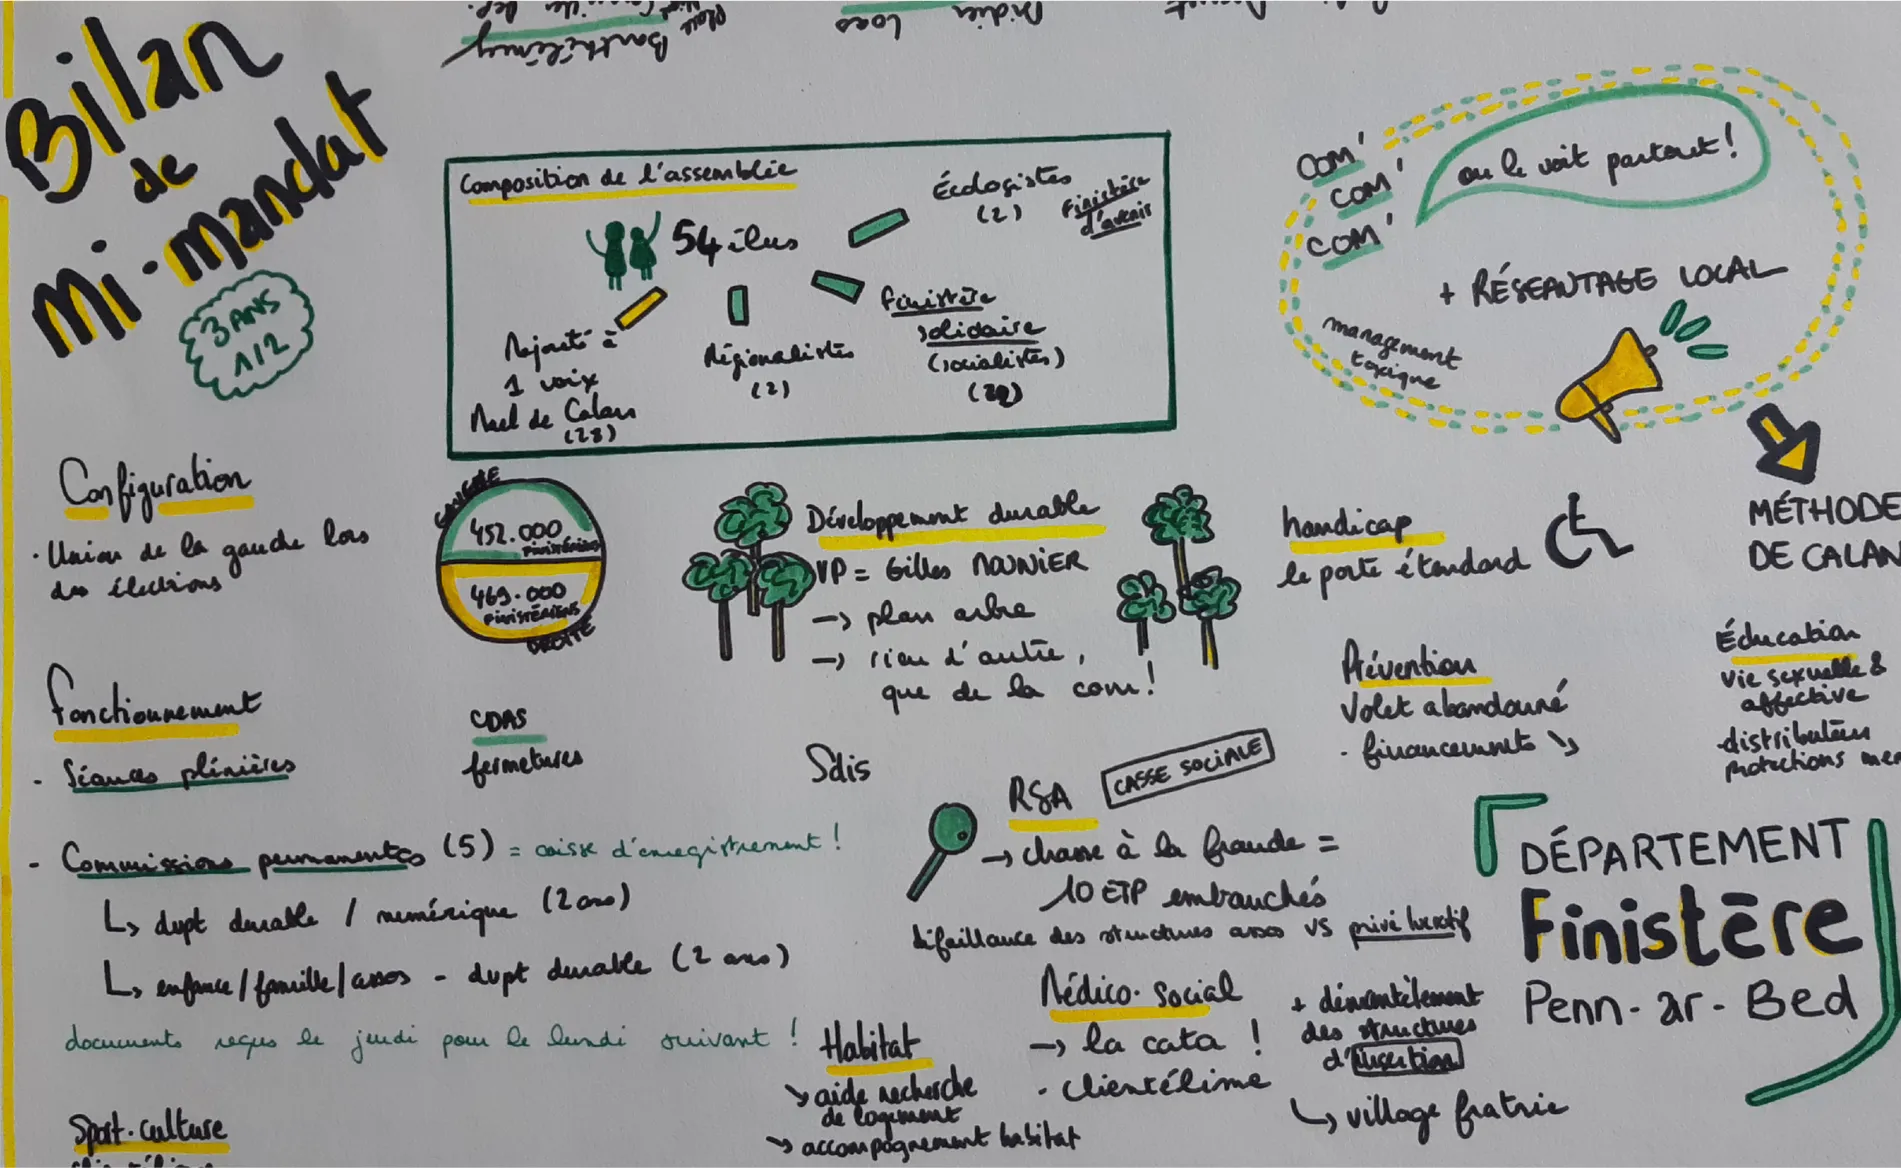 Bilan
de
Mi-mandat
3 ANS
1/2
Barthélémy
Didier Loas
Composition de l'assemblée
54 élus
Majorité à
1 voix
Mael de Calan
(28)
Régionalistes
(2)
Finistère
solidaire
(socialistes)
(22)
Écologistes
(2)
Finistère
d'avenir
COM'
COM'
COM'
on le voit partout!
+ RÉSEAUTAGE LOCAL
management
toxique
MÉTHODE
DE CALAN
Configuration
· Union de la gauche lors
des élections
GAUCHE
452.000
FINISTÉRIENS
469.000
FINISTÉRIENS
DROITE
Développement durable
VP = Gilles MOUNIER
→ plan arbre
→ rien d'autre,
que de la com!
handicap
le porte étendard
Prévention
Volet abandonné
- financements ↘
Éducation
vie sexuelle &
affective
-distributeurs
protections men
Fonctionnement
- Séances plénières
- Commissions permanentes (5) = caisse d'enregistrement!
↳ dvpt durable / numérique (2 ans)
↳ enfance/famille/assos - dvpt durable (2 ans)
documents reçus le jeudi pour le lundi suivant !
CDAS
fermetures
Sdis
RSA
CASSE SOCIALE
→ chasse à la fraude =
10 ETP embauchés
défaillance des structures assos VS privé lucratif
Médico-social
→ la cata !
- clientélisme
+ démantèlement
des structures
d'insertion
↳ village fratrie
Habitat
↘ aide recherche
de logement
↘ accompagnement habitat
DÉPARTEMENT
Finistère
Penn-ar-Bed
Sport-culture